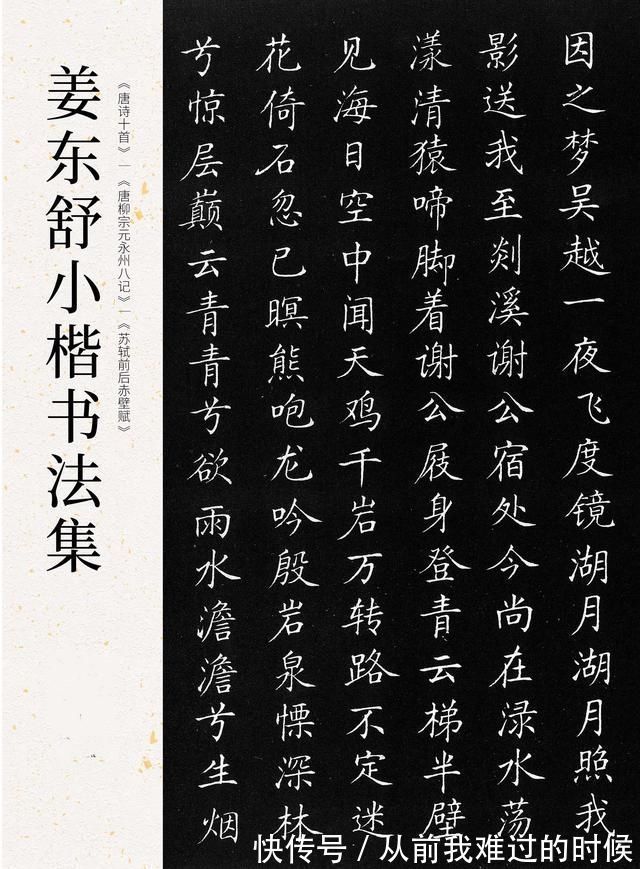 因之梦吴越一夜飞度镜湖月湖月照我
影送我至剡溪谢公宿处今尚在渌水荡
漾清猿啼脚着谢公屐身登青云梯半壁
见海日空中闻天鸡千岩万转路不定迷
花倚石忽已暝熊咆龙吟殷岩泉慄深林
兮惊层巅云青青兮欲雨水澹澹兮生烟
《唐诗十首》—《唐柳宗元永州八记》—《苏轼前后赤壁赋》
姜东舒小楷书法集
快传号/从前我难过的时候